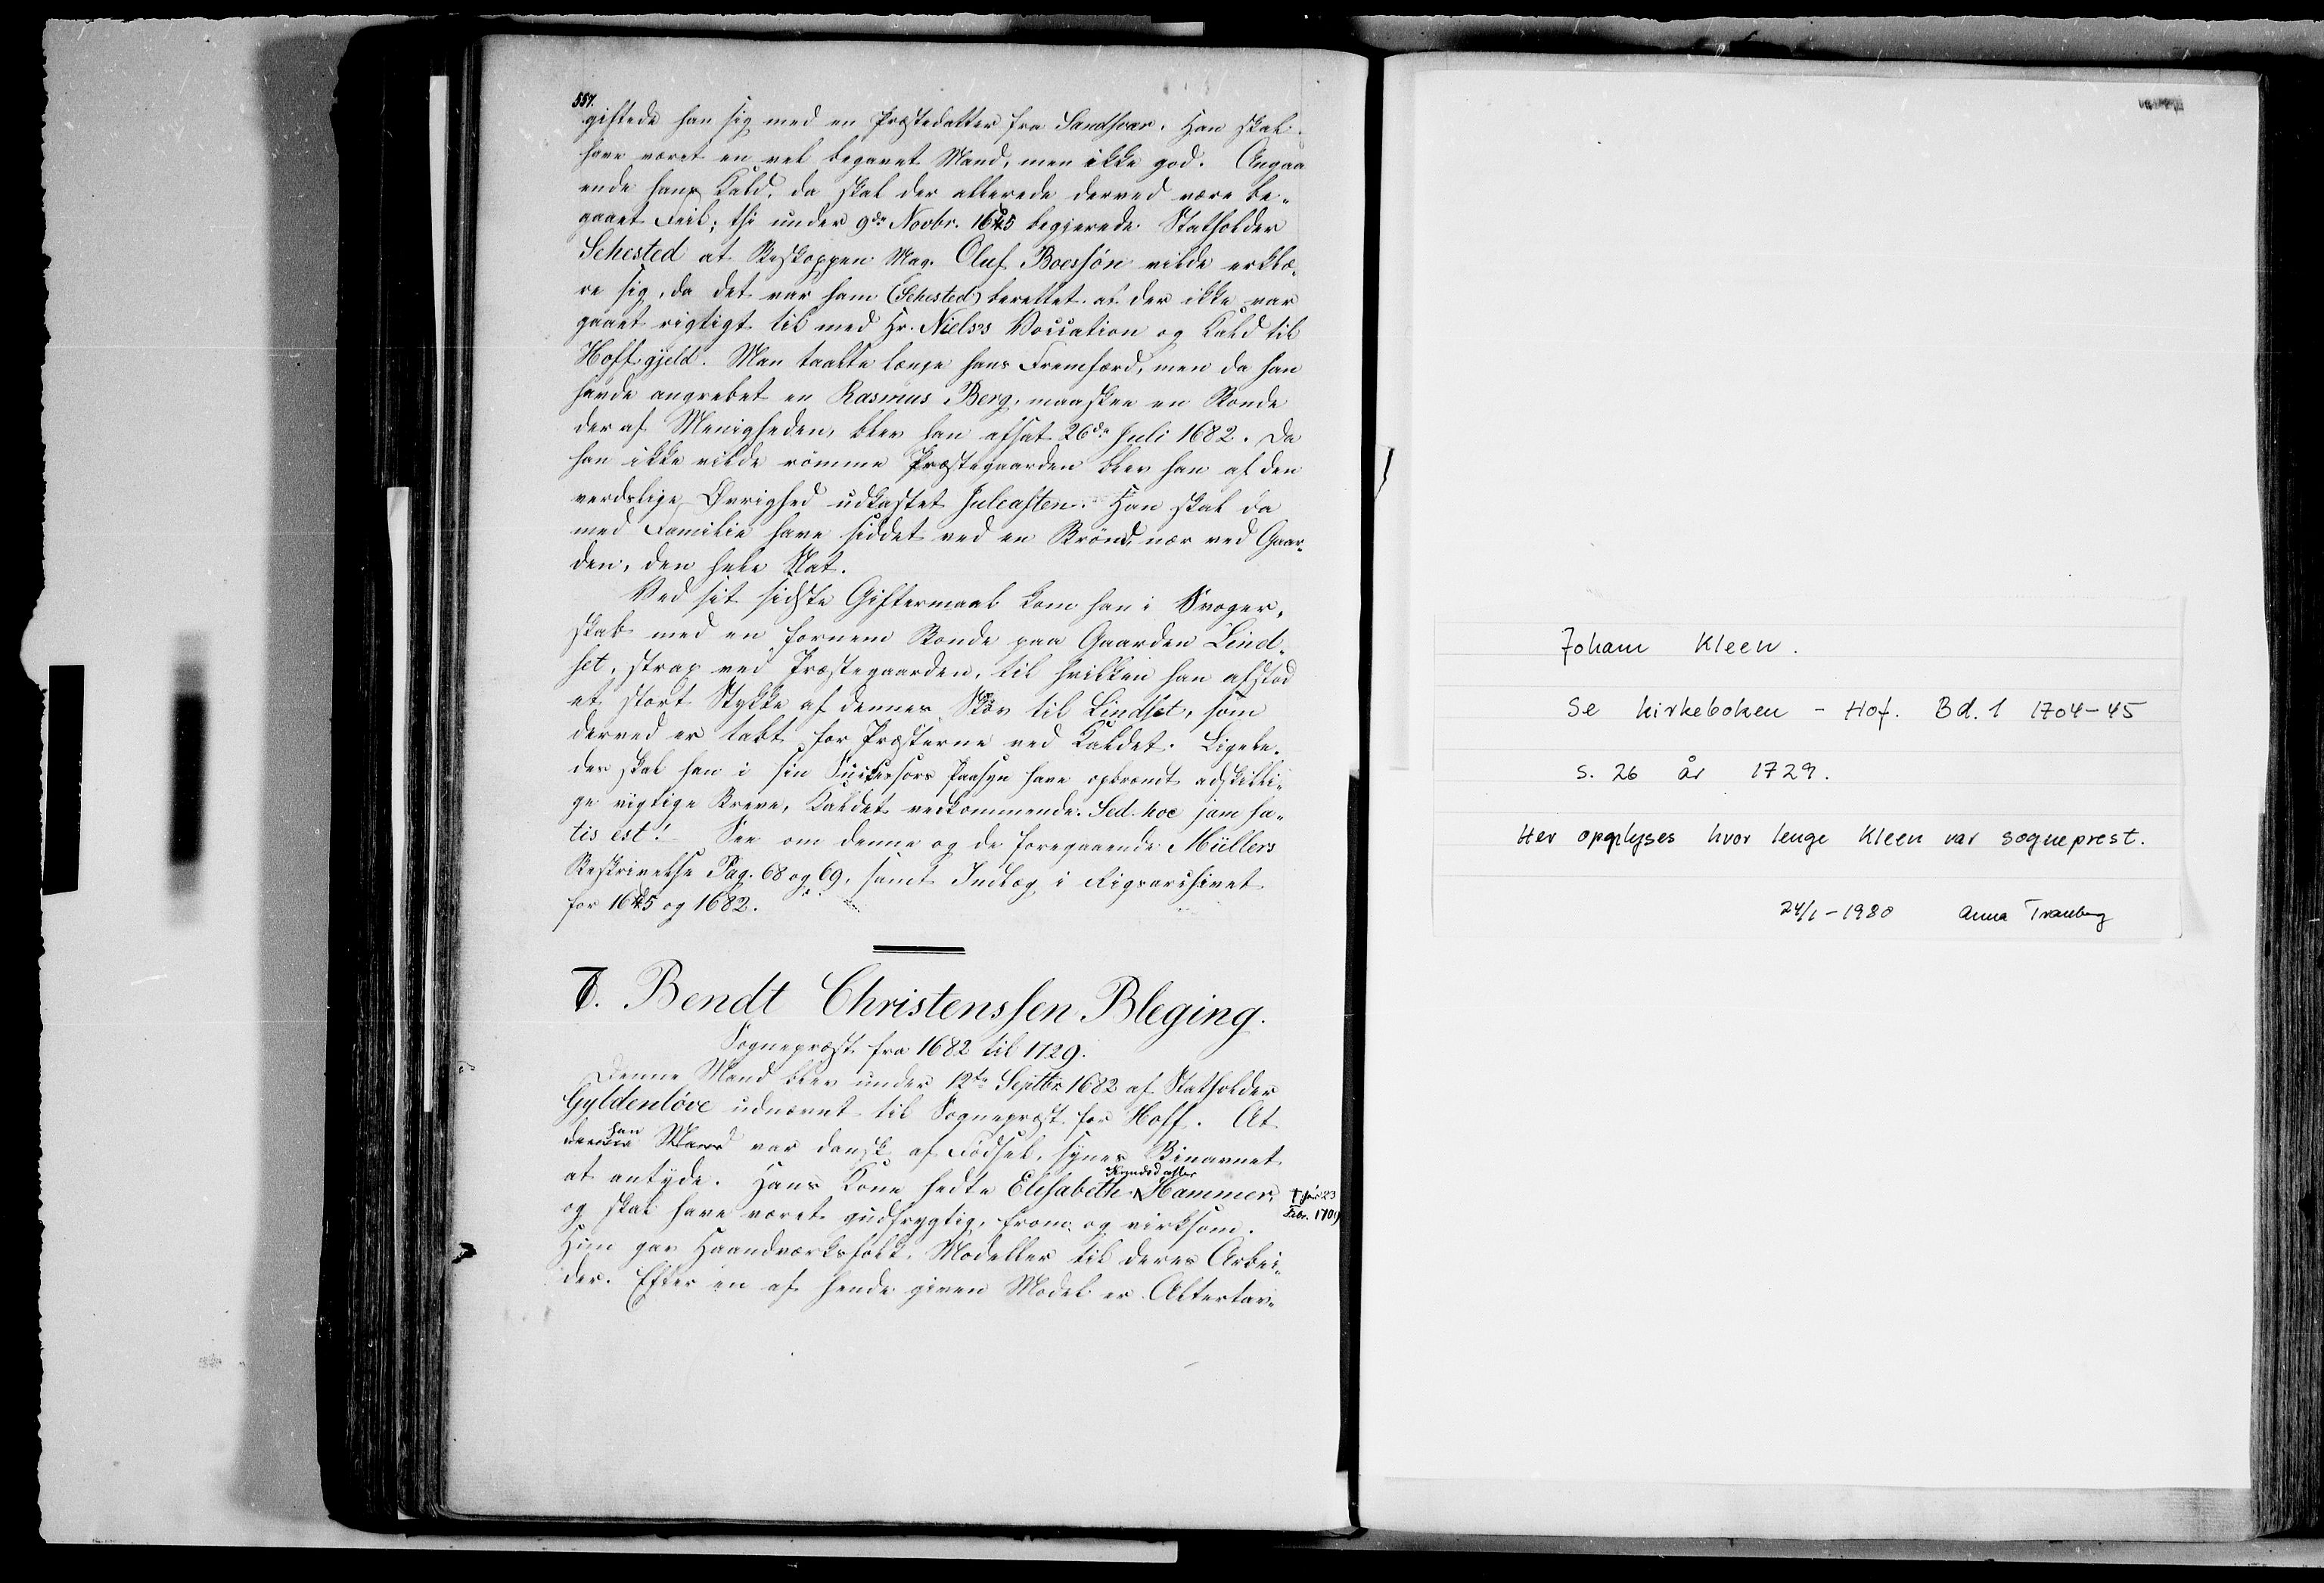 557.
giftede han sig med en Præstedatter fra Sandsvær. Han skal
have været en vel begavet Mand, men ikke god. Angaa
ende hans Kald, da skal der allerede derved være be-
gaaet Feil; thi under 9de Novbr. 1645 begjerede Statholder
Sehested at Biskoppen Mag. Oluf Boessön vilde erklæ-
re sig, da det var ham (Sehested) berettet at der ikke var
gaaet rigtigt til med Hr. Niels's Vocation og Kald til
Hoff gjeld. Man taalte længe hans Fremfærd, men da han
havde angrebet en Rasmus Berg, maaskee en Bonde
der af Menigheden, blev han afsat 26de Juli 1682. Da
han ikke vilde römme Præstegaarden blev han af den
verdslige Øvrighed udkastet Juleaften. Han skal da
med Familie have siddet ved en Brönd, nær ved Gaar-
den, den hele Nat.
Ved sit sidste Giftermaal kom han i Svoger-
skab med en fornem Bonde paa Gaarden Lind-
set, strax ved Præstegaarden, til hvilken han afstod
et stort Stykke af dennes Skov til Lindset, som
derved er tabt for Præsterne ved Kaldet. Ligele-
des skal han i sin Successors Paasyn have opbrændt adskilli-
ge vigtige Breve, Kaldet vedkommende. Sed hoc jam sa-
tis est! See om denne og de foregaaende Müllers
Beskrivelse Pag. 68 og 69, samt Indlæg i Rigsarchivet
for 1645 og 1682.
7. Bendt Christenssen Bleging.
Sognepræst fra 1682 til 1729.
Denne Mand blev under 12te Septbr. 1682 af Statholder
Gyldenlöve udnævnt til Sognepræst for Hoff. At
han
denne Mand var dansk af Födsel, synes Binavnet
at antyde. Hans Kone hedte Elisabeth Hammer,
† her 23
Febr. 1709
og skal have været gudfrygtig, from og virksom.
Hun gav Haandværksfolk Modeller til deres Arbei-
der. Efter en af hende given Model er Altertav-
Johann Kleen.
Se kirkeboken - Hof. Bd. 1 1704-45
s. 26 år 1729.
Her opplyses hvor lenge Kleen var sogneprest.
24/1-1980 Anna Tranberg